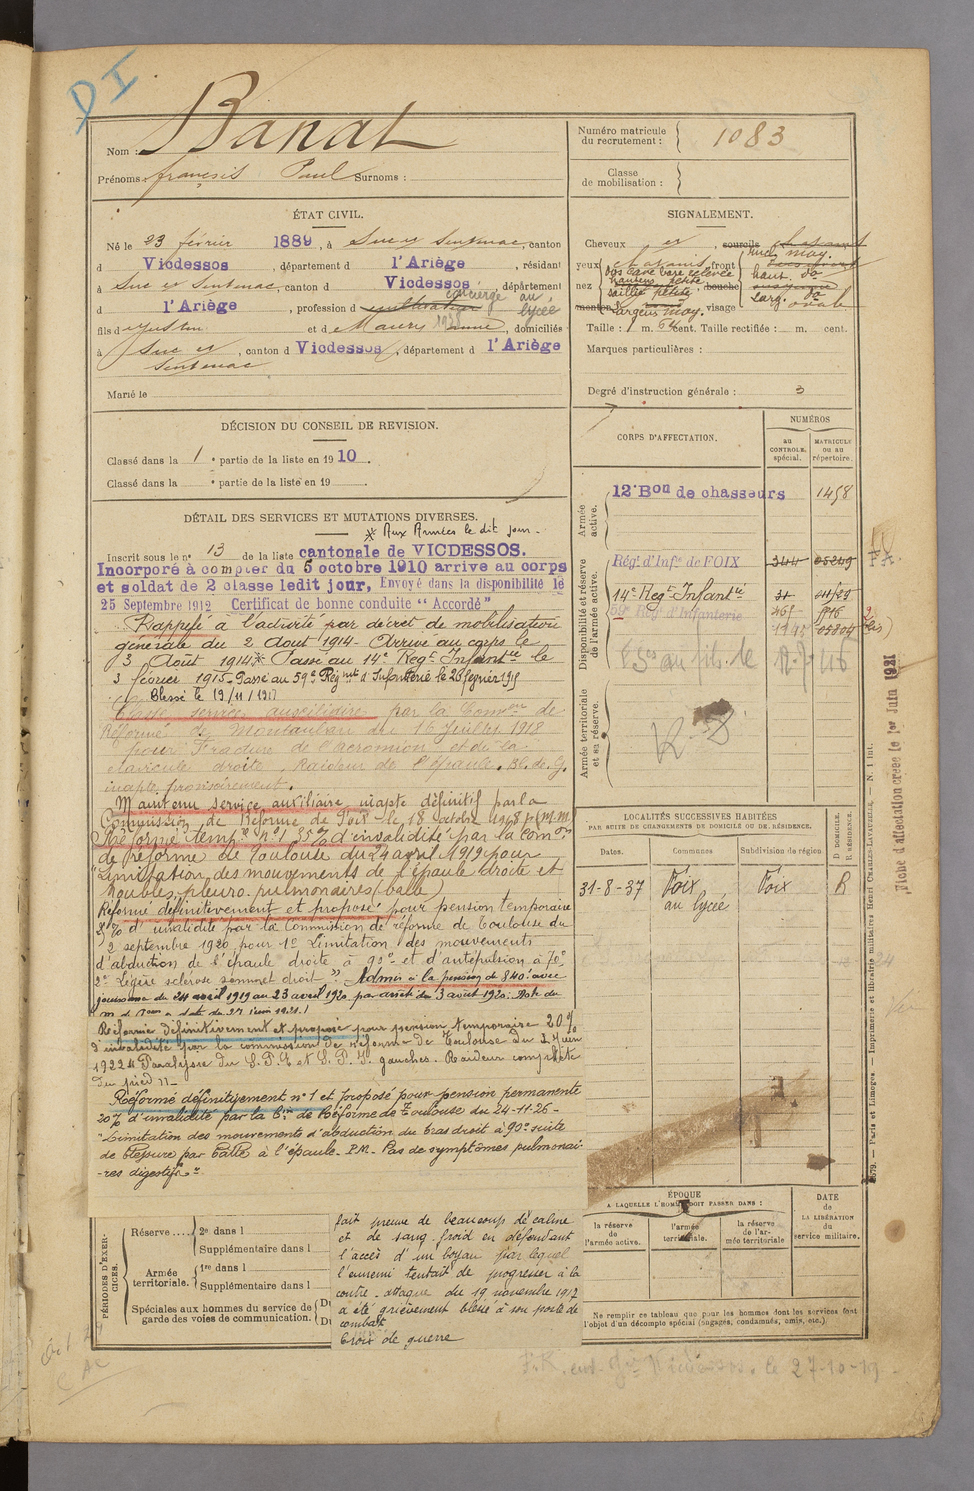 DI
Nom : Banat
Prénoms : François Paul Surnoms :
Numéro matricule du recrutement : 1083
Classe de mobilisation :
ÉTAT CIVIL.
Né le 23 février 1889, à Suc et Sentenac, canton
d Vicdessos, département d l'Ariège, résidant
à Suc et Sentenac, canton d Vicdessos, département
d l'Ariège, profession d cultivateur concierge au lycée
fils d Justin et d Maury Anne, domiciliés
à Suc et Sentenac, canton d Vicdessos, département d l'Ariège
Marié le
SIGNALEMENT.
Cheveux, sourcils
yeux, front
nez, bouche
menton, visage
Taille : 1 m. cent. Taille rectifiée : m. cent.
Marques particulières :
Degré d'instruction générale : 3
DÉCISION DU CONSEIL DE REVISION.
Classé dans la 1e partie de la liste en 1910.
Classé dans la e partie de la liste en 19
DÉTAIL DES SERVICES ET MUTATIONS DIVERSES.
* Aux Armées le dit jour.
Inscrit sous le n° 13 de la liste cantonale de VICDESSOS.
Incorporé à compter du 5 octobre 1910 arrive au corps
et soldat de 2 classe ledit jour, Envoyé dans la disponibilité le
25 Septembre 1912 Certificat de bonne conduite "Accordé"
Rappelé à l'activité par décret de mobilisation
générale du 2 Aout 1914 - Arrivé au corps le
3 Août 1914 * Passé au 14e Regt Infanterie le
3 février 1915. Passé au 59e Régiment d'Infanterie le 26 février 1915
Blessé le 19/11/1917
Classé service auxiliaire par la Comon de
Réforme de Montauban du 16 Juillet 1918
pour Fracture de l'acromion et de la
clavicule droite. Raideur de l'épaule. Bl. de G.
inapte provisoirement.
Maintenu service auxiliaire inapte définitif par la
Commission de Réforme de Foix le 18 octobre 1918 (M.M.)
Réformé tempre n°1 35% d'invalidité par la Comon
de réforme de Toulouse du 24 avril 1919 pour
"Limitation des mouvements de l'épaule droite et
troubles pleuro-pulmonaires (balle)
Réformé définitivement et proposé pour pension temporaire
35% d'invalidité par la Commission de réforme de Toulouse du
2 septembre 1920 pour 1° Limitation des mouvements
d'abduction de l'épaule droite à 90° et d'antépulsion à 70°
2° légère sclérose sommet droit" Admis à la pension de 840f avec
jouissance du 24 avril 1919 au 23 avril 1920 par arrêté du 3 août 1920.
Réformé définitivement et proposé pour pension temporaire 20%
d'invalidité par la commission de réforme de Toulouse du Juin
1922 "Paralysie du S.P.E et S.P.I. gauches. Raideur complète
du pied"
Réformé définitivement n°1 et proposé pour pension permanente
20% d'invalidité par la Con de Réforme de Toulouse du 24-11-26 -
"Limitation des mouvements d'abduction du bras droit à 90° suite
de blessure par balle à l'épaule. P.M. Pas de symptômes pulmonai-
-res digestifs"
CORPS D'AFFECTATION.
NUMÉROS
au CONTROLE spécial.
MATRICULE ou au répertoire.
Armée active.
12e Bon de chasseurs 1458
Disponibilité et réserve de l'armée active.
Régt d'Infie de FOIX 344 05249
14e Regt Infanterie
59e Reg d'Infanterie
Armée territoriale et sa réserve.
LOCALITÉS SUCCESSIVES HABITÉES
PAR SUITE DE CHANGEMENTS DE DOMICILE OU DE RÉSIDENCE.
Dates. Communes Subdivision de région D DOMICILE. R RÉSIDENCE.
31-8-37 Foix au lycée Foix R
Fiche d'affectation créée le 1er Juin 1921
Paris et Limoges. — Imprimerie et librairie militaires Henri CHARLES-LAVAUZELLE.
ÉPOQUE
A LAQUELLE L'HOMME DOIT PASSER DANS :
la réserve de l'armée active.
l'armée territoriale.
la réserve de l'armée territoriale
DATE DE LA LIBÉRATION du service militaire.
Ne remplir ce tableau que pour les hommes dont les services font
l'objet d'un décompte spécial (engagés, condamnés, omis, etc.)
PÉRIODES D'EXERCICES.
Réserve.... 2e dans l
Supplémentaire dans l
Armée territoriale. 1re dans l
Supplémentaire dans l
Spéciales aux hommes du service de garde des voies de communication. Du
Du
fait preuve de beaucoup de calme
et de sang froid en défendant
l'accès d'un boyau par lequel
l'ennemi tentait de progresser à la
contre-attaque du 19 novembre 1917
a été grièvement blessé à son poste de
combat
Croix de guerre